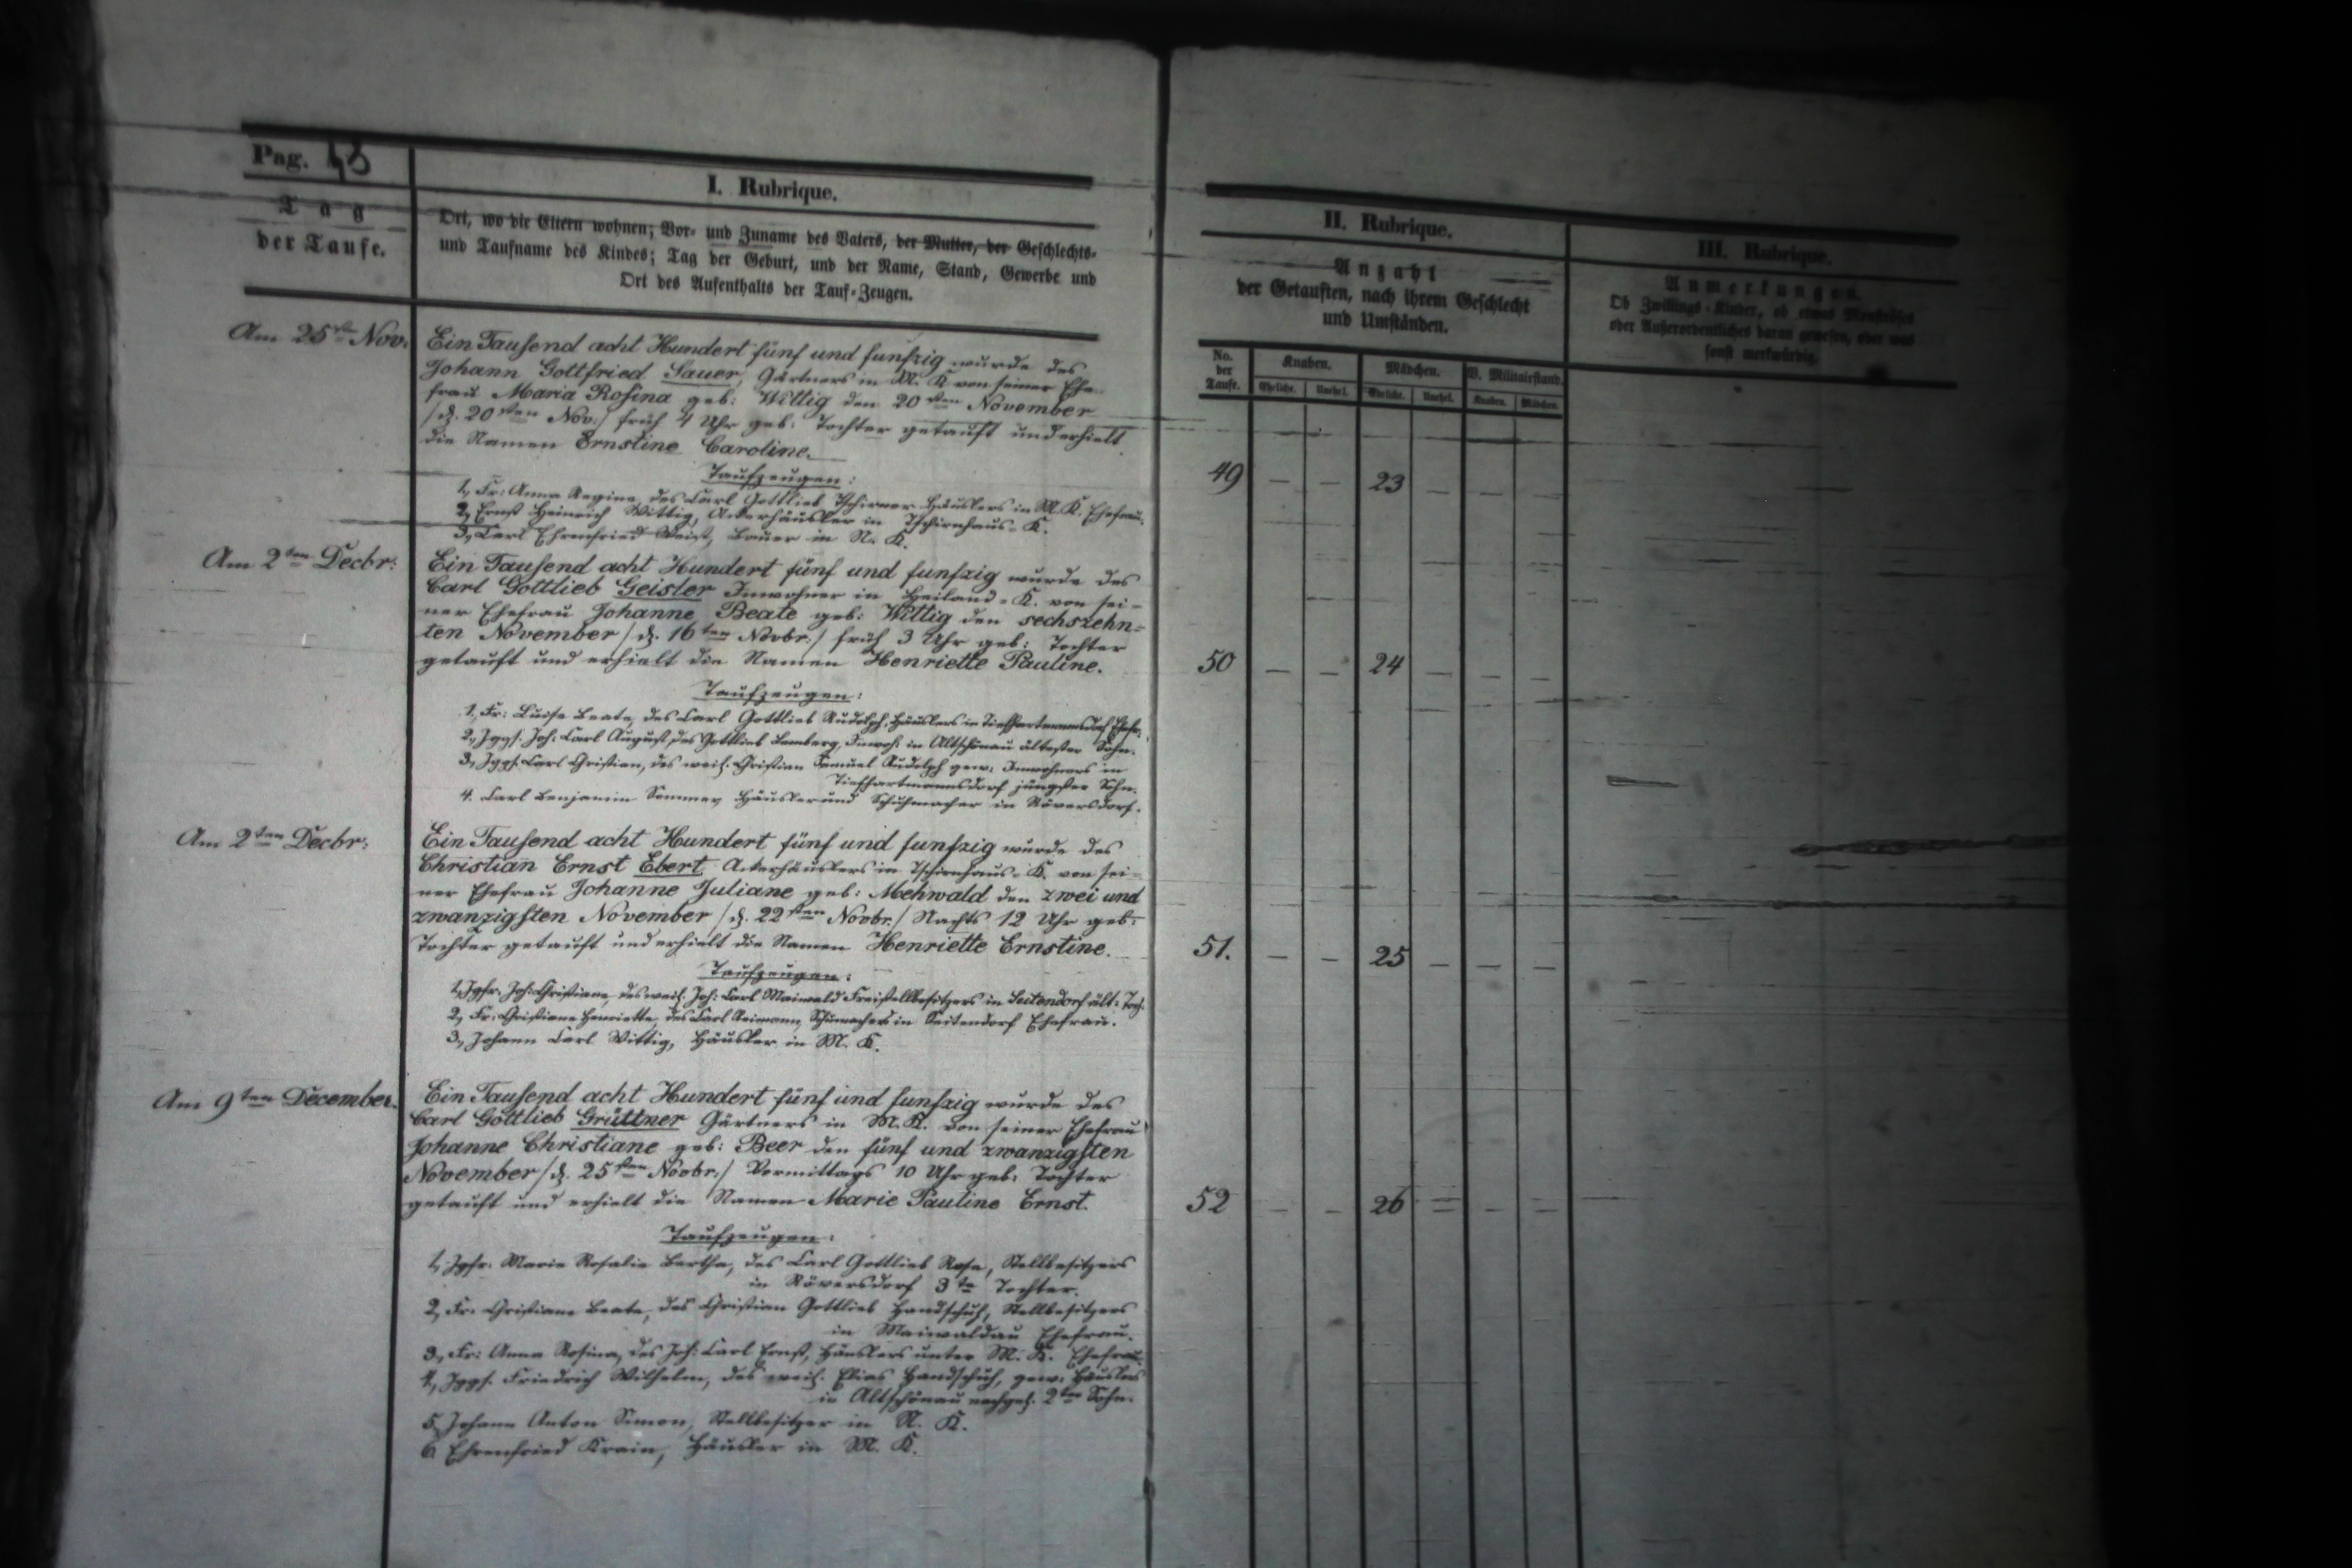 Pag. 43
I. Rubrique.
Tag
der Taufe.
Ort, wo die Eltern wohnen; Vor- und Zuname des Vaters, der Mutter, der Geschlechts-
und Taufname des Kindes; Tag der Geburt, und der Name, Stand, Gewerbe und
Ort des Aufenthalts der Tauf-Zeugen.
II. Rubrique.
Anzahl
der Getauften, nach ihrem Geschlecht
und Umständen.
No. der Taufe.
Knaben.
Mädchen.
V. Militairstand.
Eheliche. Unehel. Eheliche. Unehel. Knaben. Mädchen.
III. Rubrique.
Anmerkungen.
Ob Zwillings-Kinder, ob etwas Monströses
oder Außerordentliches daran gewesen, oder was
sonst merkwürdig.
Am 25sten Nov.
Ein Tausend acht Hundert fünf und funfzig wurde des
Johann Gottfried Sauer, Gärtners in M. K. von seiner Ehe-
frau Maria Rosina geb: Wittig den 20sten November
/d. 20sten Nov:/ früh 4 Uhr geb: Tochter getauft und erhielt
die Namen Ernstine Caroline.
49 — — 23 — — —
Taufzeugen:
1, Fr: Anna Regina, des Carl Gottlieb Tschirner Häuslers in M. K. Ehefrau.
2, Ernst Heinrich Wittig, Ackerhäusler in Tschirnhaus-K.
3, Carl Ehrenfried Weist, Bauer in N. K.
Am 2ten Decbr:
Ein Tausend acht Hundert fünf und funfzig wurde des
Carl Gottlieb Geisler Inwohner in Heiland-K. von sei-
ner Ehefrau Johanne Beate geb: Wittig den sechszehn-
ten November /d. 16ten Novbr./ früh 3 Uhr geb: Tochter
getauft und erhielt die Namen Henriette Pauline.
50 — — 24 — — —
Taufzeugen:
1, Fr: Luise Beate, des Carl Gottlieb Rudolph, Häuslers in Tiefhartmannsdorf Ehefr.
2, Jggs. Joh: Carl August, des Gottlieb Bamberg, Inwoh: in Altschönau ältester Sohn.
3, Jggs. Carl Christian, des weil. Christian Samuel Rudolph gew: Inwohners in
Tiefhartmannsdorf jüngster Sohn.
4. Carl Benjamin Sommer Häusler und Schuhmacher in Röversdorf.
Am 2ten Decbr:
Ein Tausend acht Hundert fünf und funfzig wurde des
Christian Ernst Ebert Ackerhäuslers in Tschirnhaus-K. von sei-
ner Ehefrau Johanne Juliane geb: Mehwald den zwei und
zwanzigsten November /d. 22sten Novbr./ Nachts 12 Uhr geb:
Tochter getauft und erhielt die Namen Henriette Ernstine.
51. — — 25 — — —
Taufzeugen:
1, Jgfr. Joh: Christiane, des weil. Joh: Carl Maiwald Freistellbesitzers in Seitendorf ält: Toch.
2, Fr: Christiane Henriette, des Carl Reimann, Schumachers in Seitendorf Ehefrau.
3, Johann Carl Wittig, Häusler in M. K.
Am 9ten December.
Ein Tausend acht Hundert fünf und funfzig wurde des
Carl Gottlieb Grüttner Gärtners in M. K. von seiner Ehefrau
Johanne Christiane geb: Beer den fünf und zwanzigsten
November /d. 25sten Novbr./ Vormittags 10 Uhr geb: Tochter
getauft und erhielt die Namen Marie Pauline Ernst.
52 — — 26 — — —
Taufzeugen:
1, Jgfr. Marie Rosalie Bertha, des Carl Gottlieb Rose, Stellbesitzers
in Röversdorf 3te Tochter.
2, Fr: Christiane Beate, des Christian Gottlieb Handschuh, Stellbesitzers
in Maiwaldau Ehefrau.
3, Fr: Anna Rosina, des Joh: Carl Ernst, Häuslers unter M. K. Ehefrau.
4, Jggs. Friedrich Wilhelm, des weil. Elias Handschuh, gew: Häuslers
in Altschönau nachgel. 2ter Sohn.
5, Johann Anton Simon, Stellbesitzer in N. K.
6 Ehrenfried Krain, Häusler in M. K.